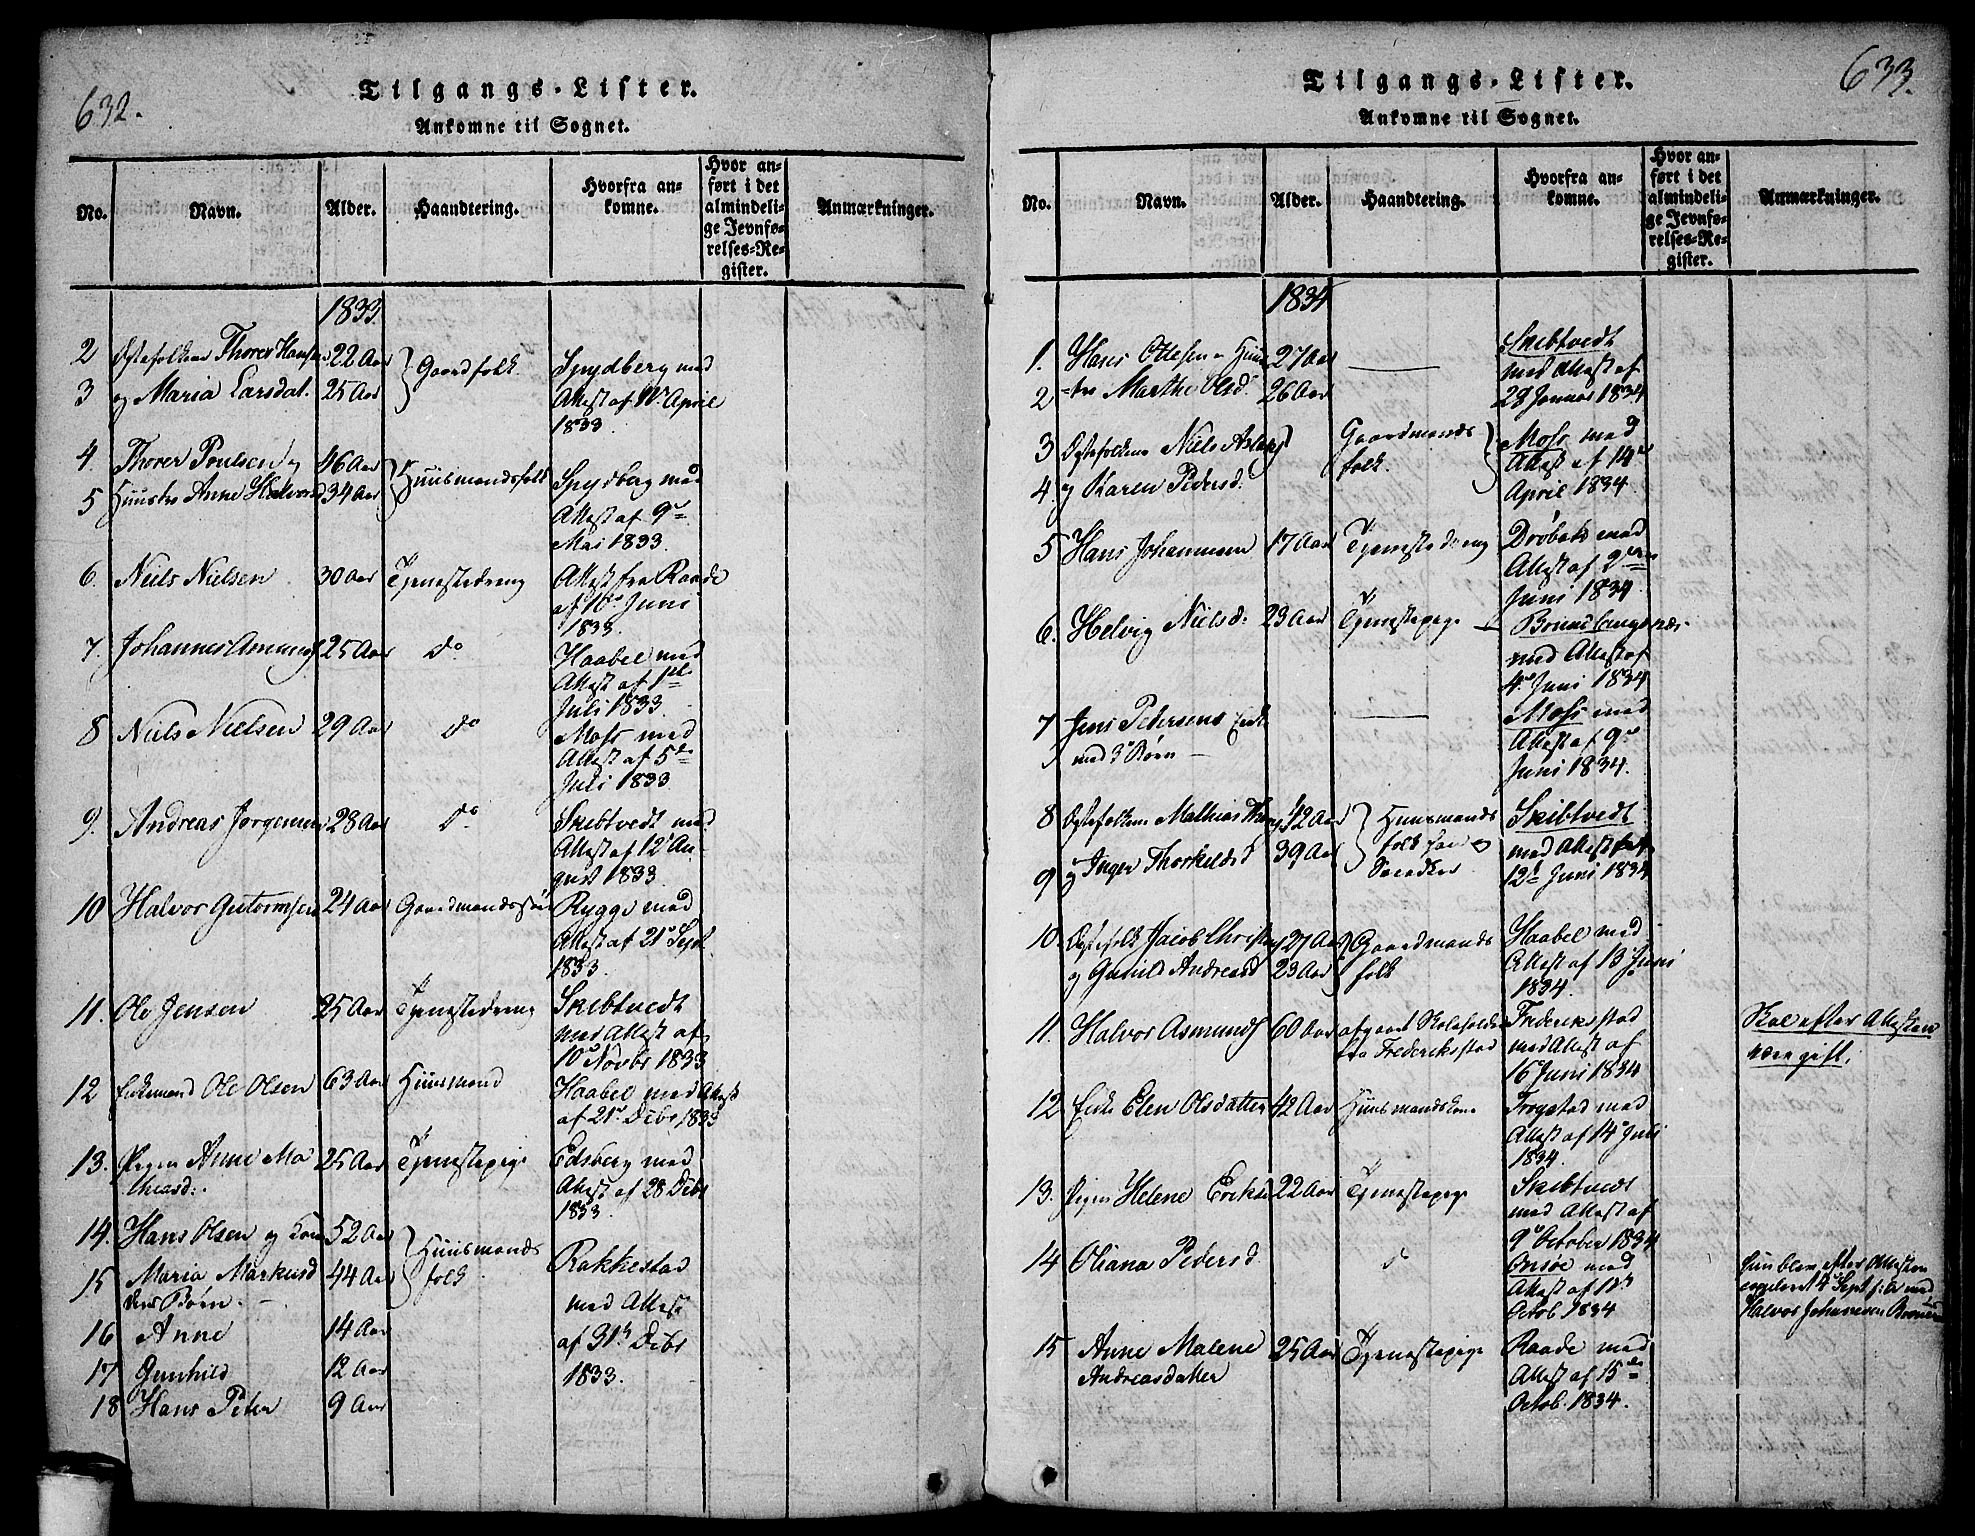 632.
Tilgangs-Lister.
Ankomne til Sognet.
No. Navn. Alder. Haandtering. Hvorfra ankomne. Hvor anført i det almindelige Jevnførelses-Register. Anmærkninger.
1833.
2 Ægtefolkene Thorer Hansen 22 Aar Gaardfolk Spydberg med
3 og Maria Larsdat. 25 Aar Attest af April
1833
4. Thorer Poulsen og 46 Aar Huusmandsfolk Spydberg med
5 Huustro Anne Halvorsd 34 Aar Attest af 9de
Mai 1833.
6. Niels Nielsen 30 Aar Tjenestedreng Attest fra Raade
af Juni
1833.
7. Johannes Asmunds 25 Aar do Haabel med
Attest af 1ste
Juli 1833.
8 Niels Nielsen 29 Aar do Moss med
Attest af 5de
Juli 1833
9. Andreas Jørgensen 28 Aar do Skibtvedt med
Attest af 12 Au-
gust 1833.
10 Halvor Gutormsen 24 Aar Gaardmandssøn Rygge med
Attest af 21 Sept.
1833.
11. Ole Jensen 25 Aar Tjenestedreng Skibtvedt
med Attest af
10de Novbr 1833
12 Enkemand Ole Olsen 63 Aar Huusmand Haabel med Attest
af 21 Debr 1833
13. Pigen Anne Ma 25 Aar Tjenestepige Edsberg med
thiasd: Attest af 28 Debr
1833.
14. Hans Olsen og Kone 52 Aar Huusmands
15 Maria Markusd 44 Aar folk. Rakkestad
deres Børn. med Attest
16 Anne 14 Aar af 31te Debr
17 Gunhild 12 Aar 1833.
18 Hans Peter 9 Aar
633.
Tilgangs-Lister.
Ankomne til Sognet.
No. Navn. Alder. Haandtering. Hvorfra ankomne. Hvor anført i det almindelige Jevnførelses-Register. Anmærkninger.
1834
1. Hans Ottesen og Huus 27 Aar Skibtvedt
2 -tro Marthe Olsd. 26 Aar med Attest af
28 Januar 1834
3 Ægtefolkene Niels Gaardmands Moss med
4. og Karen Pedersd. folk. Attest af 14de
April 1834.
5 Hans Johannesen 17 Aar Tjenestedreng Drøbak med
Attest af 2den
Juni 1834.
6. Helvig Nielsd: 23 Aar Tjenestepige
med Attest af
4de Juni 1834
7 Jens Pedersens Enke Moss med
med 3 Børn Attest af 9de
Juni 1834.
8 Ægtefolkene Mathias 42 Aar Huusmands Skibtvedt
9 og Inger Thorkeldsd 39 Aar folk med Attest
12te Juni 1834
10. Ægtefolk Jacob Christens 27 Aar Gaardmands Haabel med
og Gunild Andreasd 23 Aar folk Attest af 13 Juni
1834.
11. Halvor Asmunds 60 Aar afgaaet Skoleholder Frederiksstad Skal efter Attesten
fra Frederiksstad med Attest af være gift.
16 Juni 1834
12 Enke Elen Olsdatter 42 Aar Huusmandskone Trøgstad med
Attest af 14 Juli
1834.
13. Pigen Helene Eriks 22 Aar Tjenestepige Skibtvedt
med Attest af
9de October 1834
14 Oliana Pedersd do Onsøe med Hun blev efter Attesten
Attest af 12te 4de Sept f: A med
Octob. 1834 Halvor Johannesen
15 Anne Malene 25 Aar Tjenestepige Raade med
Andreasdatter Attest af 15de
Octob. 1834.